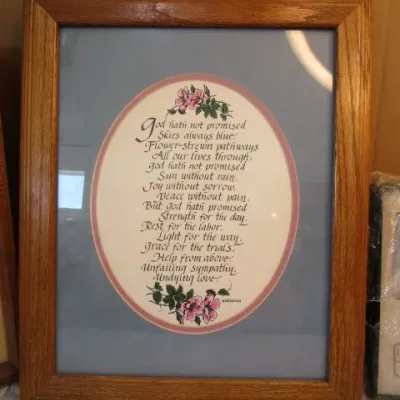 God hath not promised
Skies always blue,
Flower-strewn pathways
All our lives through;
God hath not promised
Sun without rain
Joy without sorrow,
Peace without pain.
But God hath promised
Strength for the day,
Rest for the labor,
Light for the way,
Grace for the trials,
Help from above,
Unfailing sympathy,
Undying love.